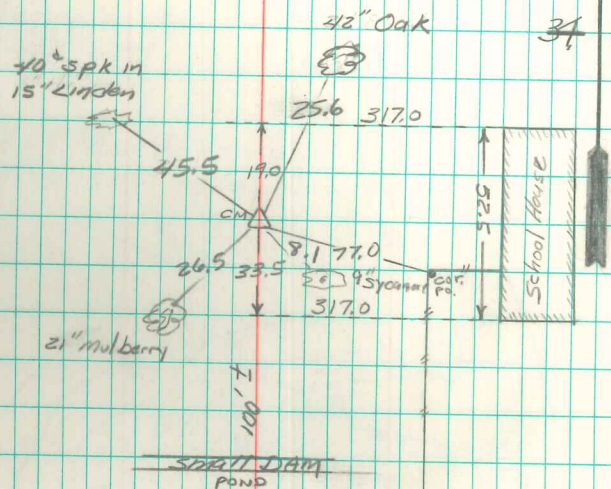 42" Oak
34
40d spk in
15" Linden
25.6
317.0
45.5
19.0
CM
52.5
School House
8.1
77.0
26.5
33.5
9" Sycamore
cor.
po.
317.0
21" mulberry
100' ±
small DAM
POND